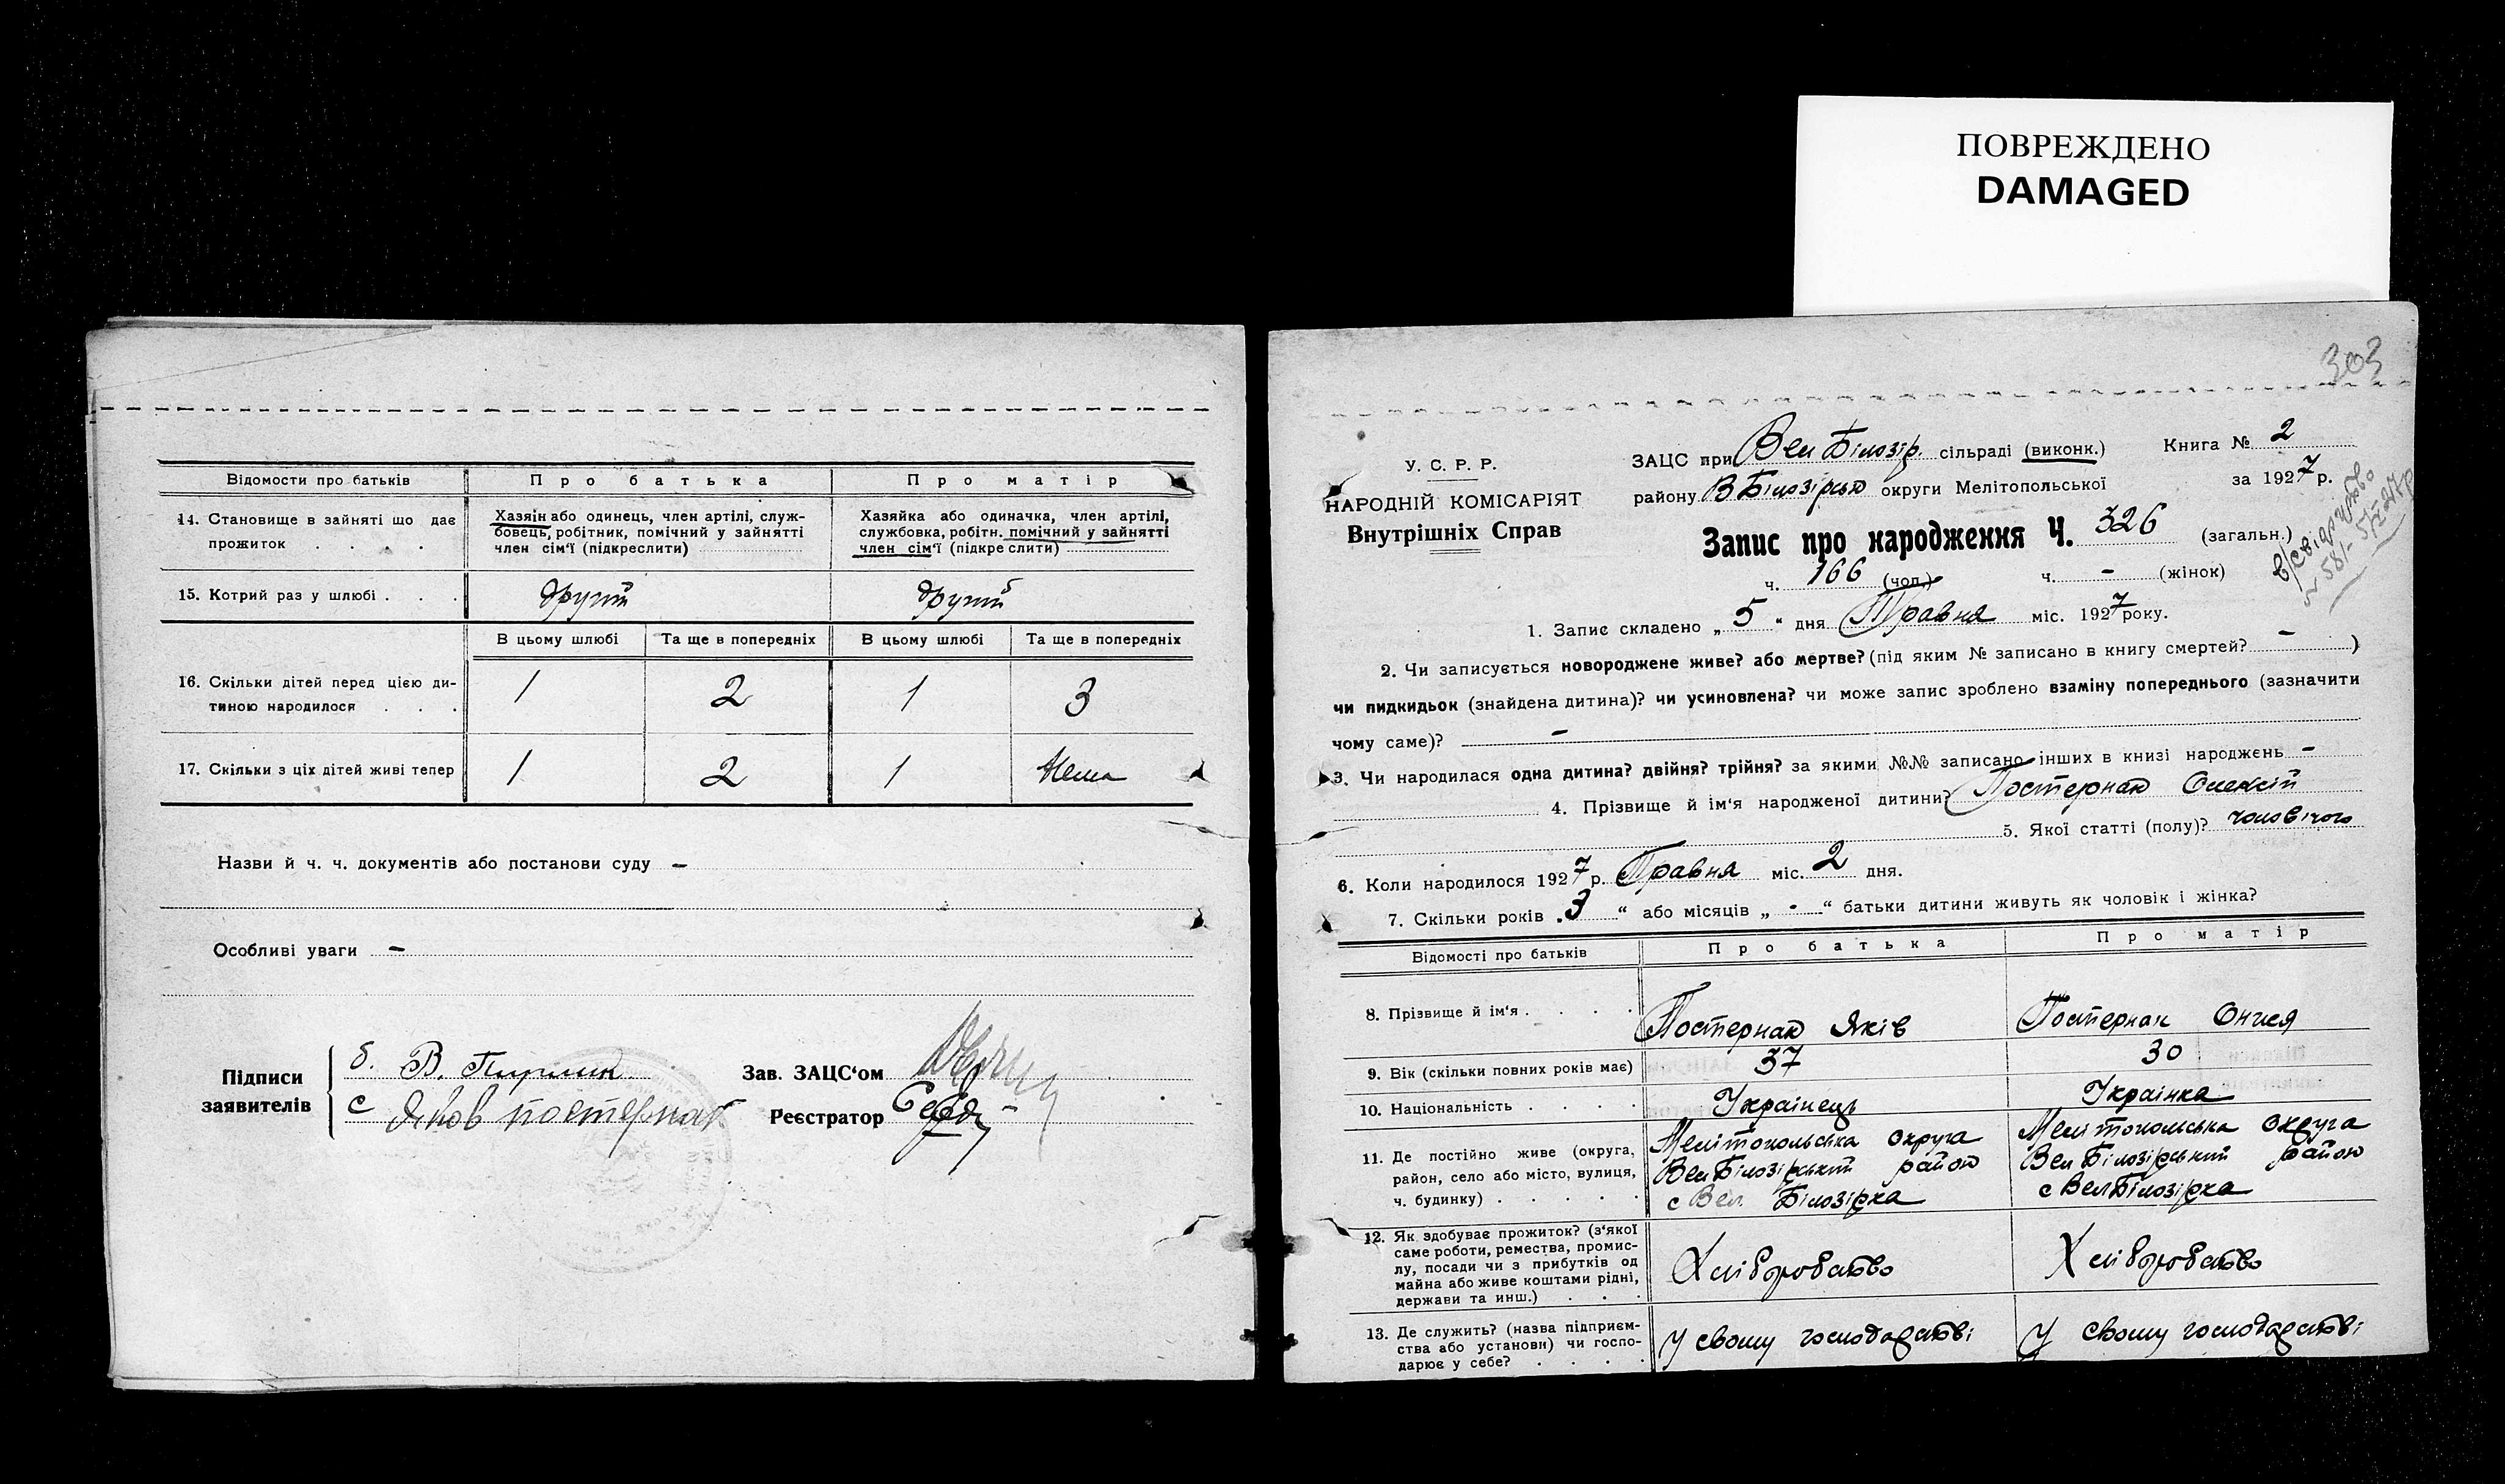 ПОВРЕЖДЕНО
DAMAGED
Відомости про батьків
Про батька
Про матір
14. Становище в зайняті що дає
прожиток . . .
Хазяїн або одинець, член артілі, служ-
бовець, робітник, помічний у зайнятті
член сім'ї (підкреслити)
Хазяйка або одиначка, член артілі,
службовка, робітн. помічний у зайнятті
член сім'ї (підкреслити)
15. Котрий раз у шлюбі . . .
другий
другий
В цьому шлюбі
Та ще в попередніх
В цьому шлюбі
Та ще в попередніх
16. Скільки дітей перед цією ди-
тиною народилося . . .
1
2
1
3
17. Скільки з ціх дітей живі тепер
1
2
1
Нема
Назви й ч. ч. документів або постанови суду -
Особливі уваги -
Підписи
заявителів
б. В.
с Яков постернак
Зав. ЗАЦС'ом
Реєстратор
303
У. С. Р. Р.
НАРОДНІЙ КОМІСАРІЯТ
Внутрішніх Справ
ЗАЦС при Вел Білозір. сільраді (виконк.)
Книга № 2
району В Білозірсько округи Мелітопольської
за 1927 р.
Запис про народження Ч. 326 (загальн.)
ч. 166 (чол.) ч. - (жінок)
1. Запис складено „5“ дня Травня міс. 1927 року.
2. Чи записується новороджене живе? або мертве? (під яким № записано в книгу смертей? -)
чи пидкидьок (знайдена дитина)? чи усиновлена? чи може запис зроблено взаміну попереднього (зазначити
чому саме)? -
3. Чи народилася одна дитина? двійня? трійня? за якими №№ записано інших в книзі народжень -
4. Прізвище й ім'я народженої дитини? Постернак Олексій
5. Якої статті (полу)? чоловічого
6. Коли народилося 1927 р. Травня міс. 2 дня.
7. Скільки років „3“ або місяців „-“ батьки дитини живуть як чоловік і жінка?
Відомості про батьків
Про батька
Про матір
8. Прізвище й ім'я . . . .
Постернак Яків
Постернак
9. Вік (скільки повних років має)
37
30
10. Національність . . . .
Українець
Українка
11. Де постійно живе (округа,
район, село або місто, вулиця,
ч. будинку) . . . . .
Мелітопольська округа
Вел Білозірський район
с Вел. Білозірка
Мелітопольська округа
Вел Білозірський район
с Вел Білозірка
12. Як здобуває прожиток? (з'якої
саме роботи, ремества, промис-
лу, посади чи з прибутків од
майна або живе коштами рідні,
держави та инш.) . . .
Хліборобство
Хліборобство
13. Де служить? (назва підприєм-
ства або установи) чи госпо-
дарює у себе? . . . .
У свому господарстві
У свому господарстві